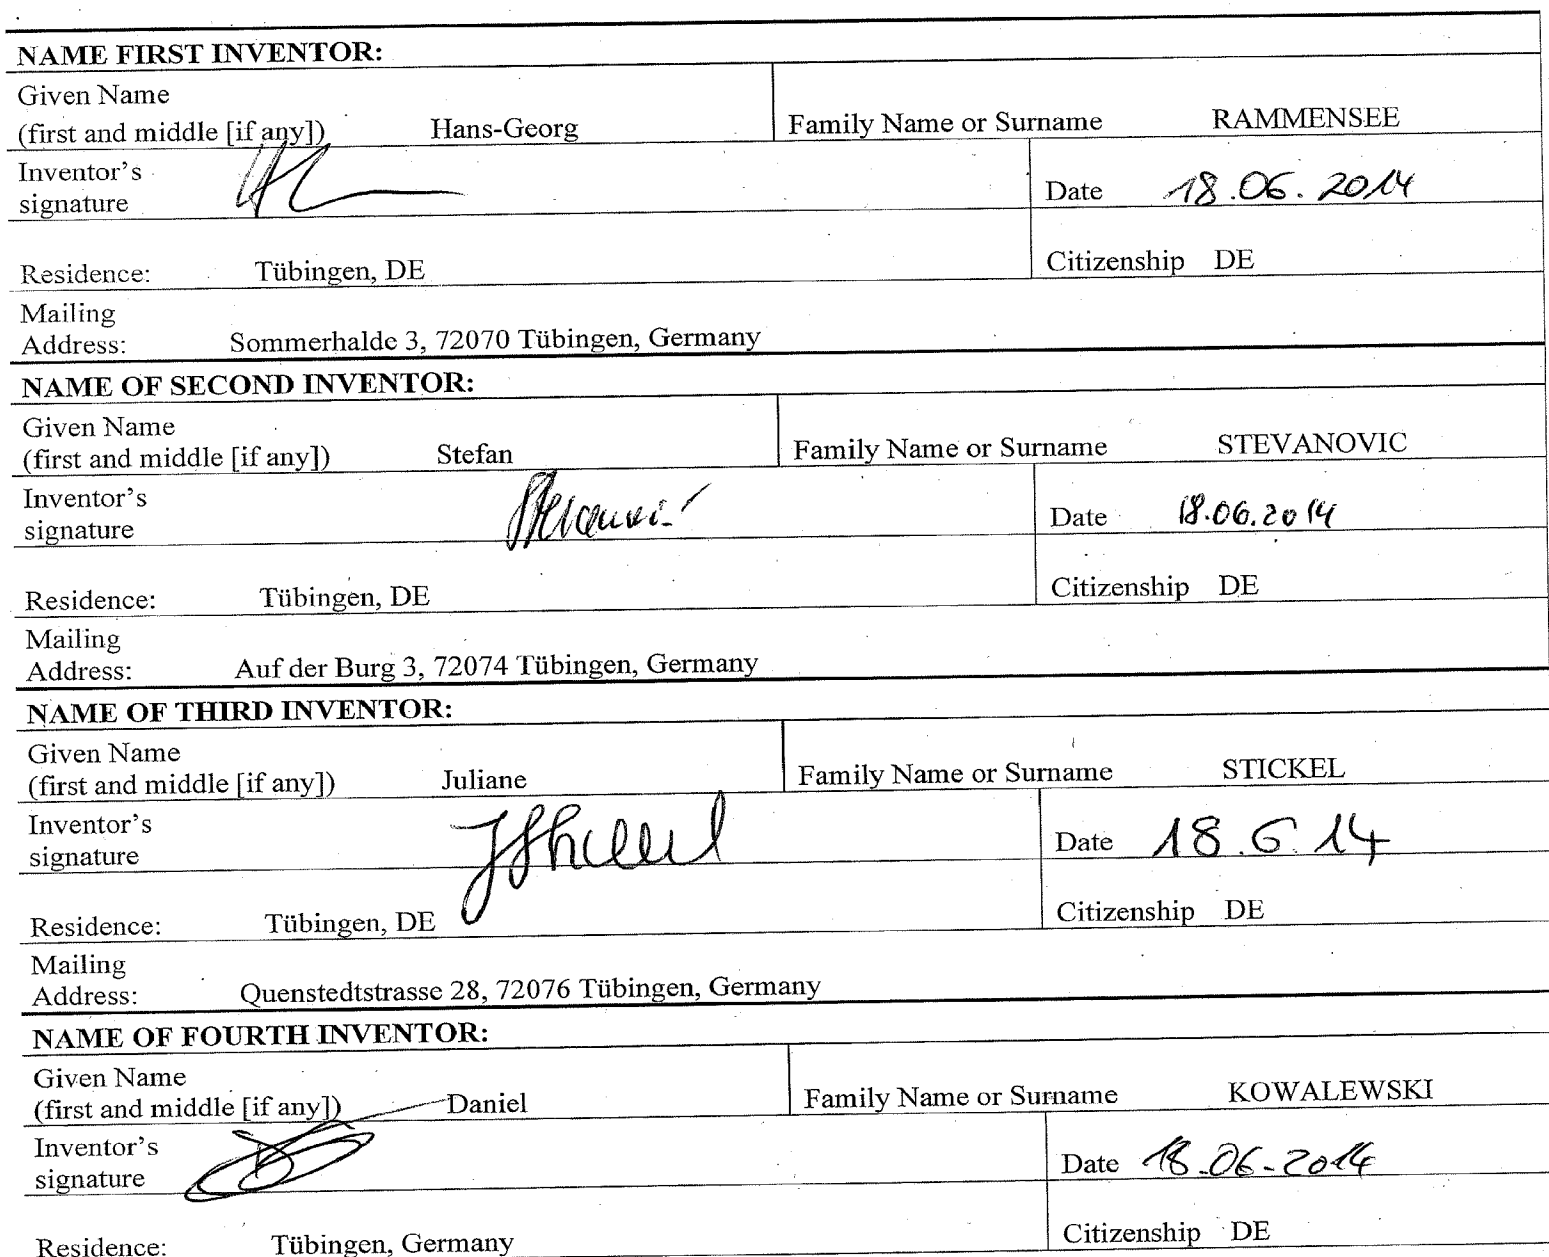 NAME FIRST INVENTOR:
Given Name
(first and middle [if any]) Hans-Georg Family Name or Surname RAMMENSEE
Inventor's
signature Date 18.06.2014
Residence: Tübingen, DE Citizenship DE
Mailing
Address: Sommerhalde 3, 72070 Tübingen, Germany
NAME OF SECOND INVENTOR:
Given Name
(first and middle [if any]) Stefan Family Name or Surname STEVANOVIC
Inventor's
signature Date 18.06.2014
Residence: Tübingen, DE Citizenship DE
Mailing
Address: Auf der Burg 3, 72074 Tübingen, Germany
NAME OF THIRD INVENTOR:
Given Name
(first and middle [if any]) Juliane Family Name or Surname STICKEL
Inventor's
signature Date 18.6.14
Residence: Tübingen, DE Citizenship DE
Mailing
Address: Quenstedtstrasse 28, 72076 Tübingen, Germany
NAME OF FOURTH INVENTOR:
Given Name
(first and middle [if any]) Daniel Family Name or Surname KOWALEWSKI
Inventor's
signature Date 18.06.2014
Residence: Tübingen, Germany Citizenship DE